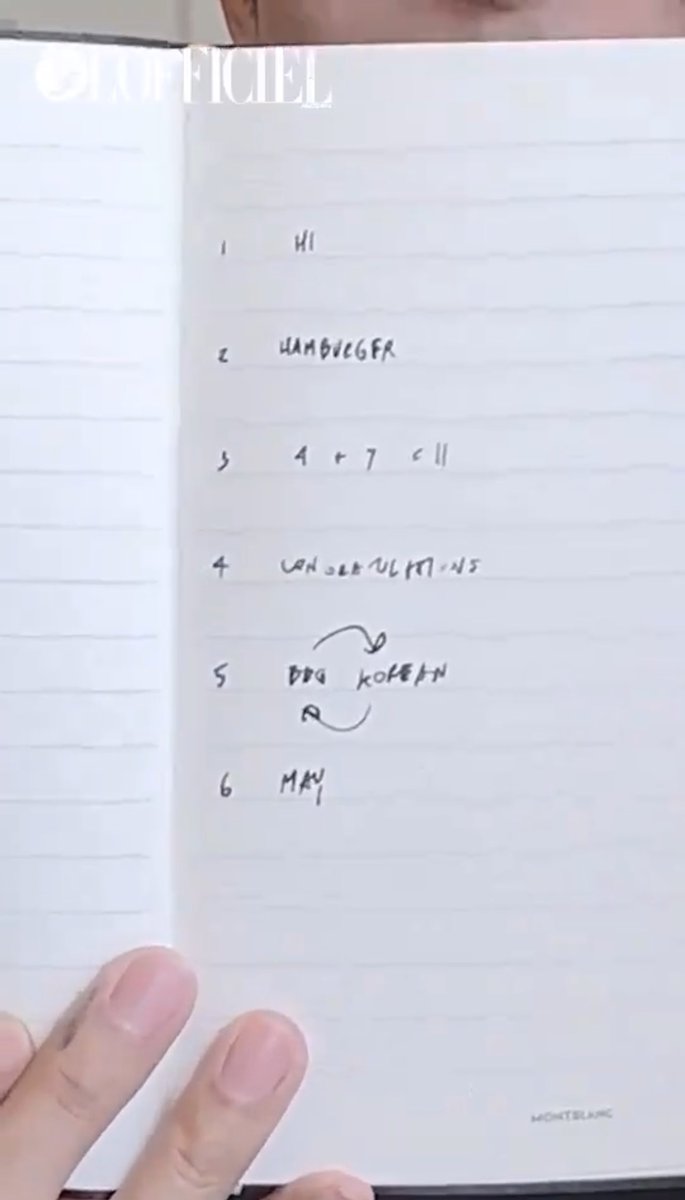 L'OFFICIEL
1 HI
2 HAMBURGER
3 4 + 7 = 11
4 CONGRATULATIONS
5 BBQ KOREAN
6 MAY
MONTBLANC